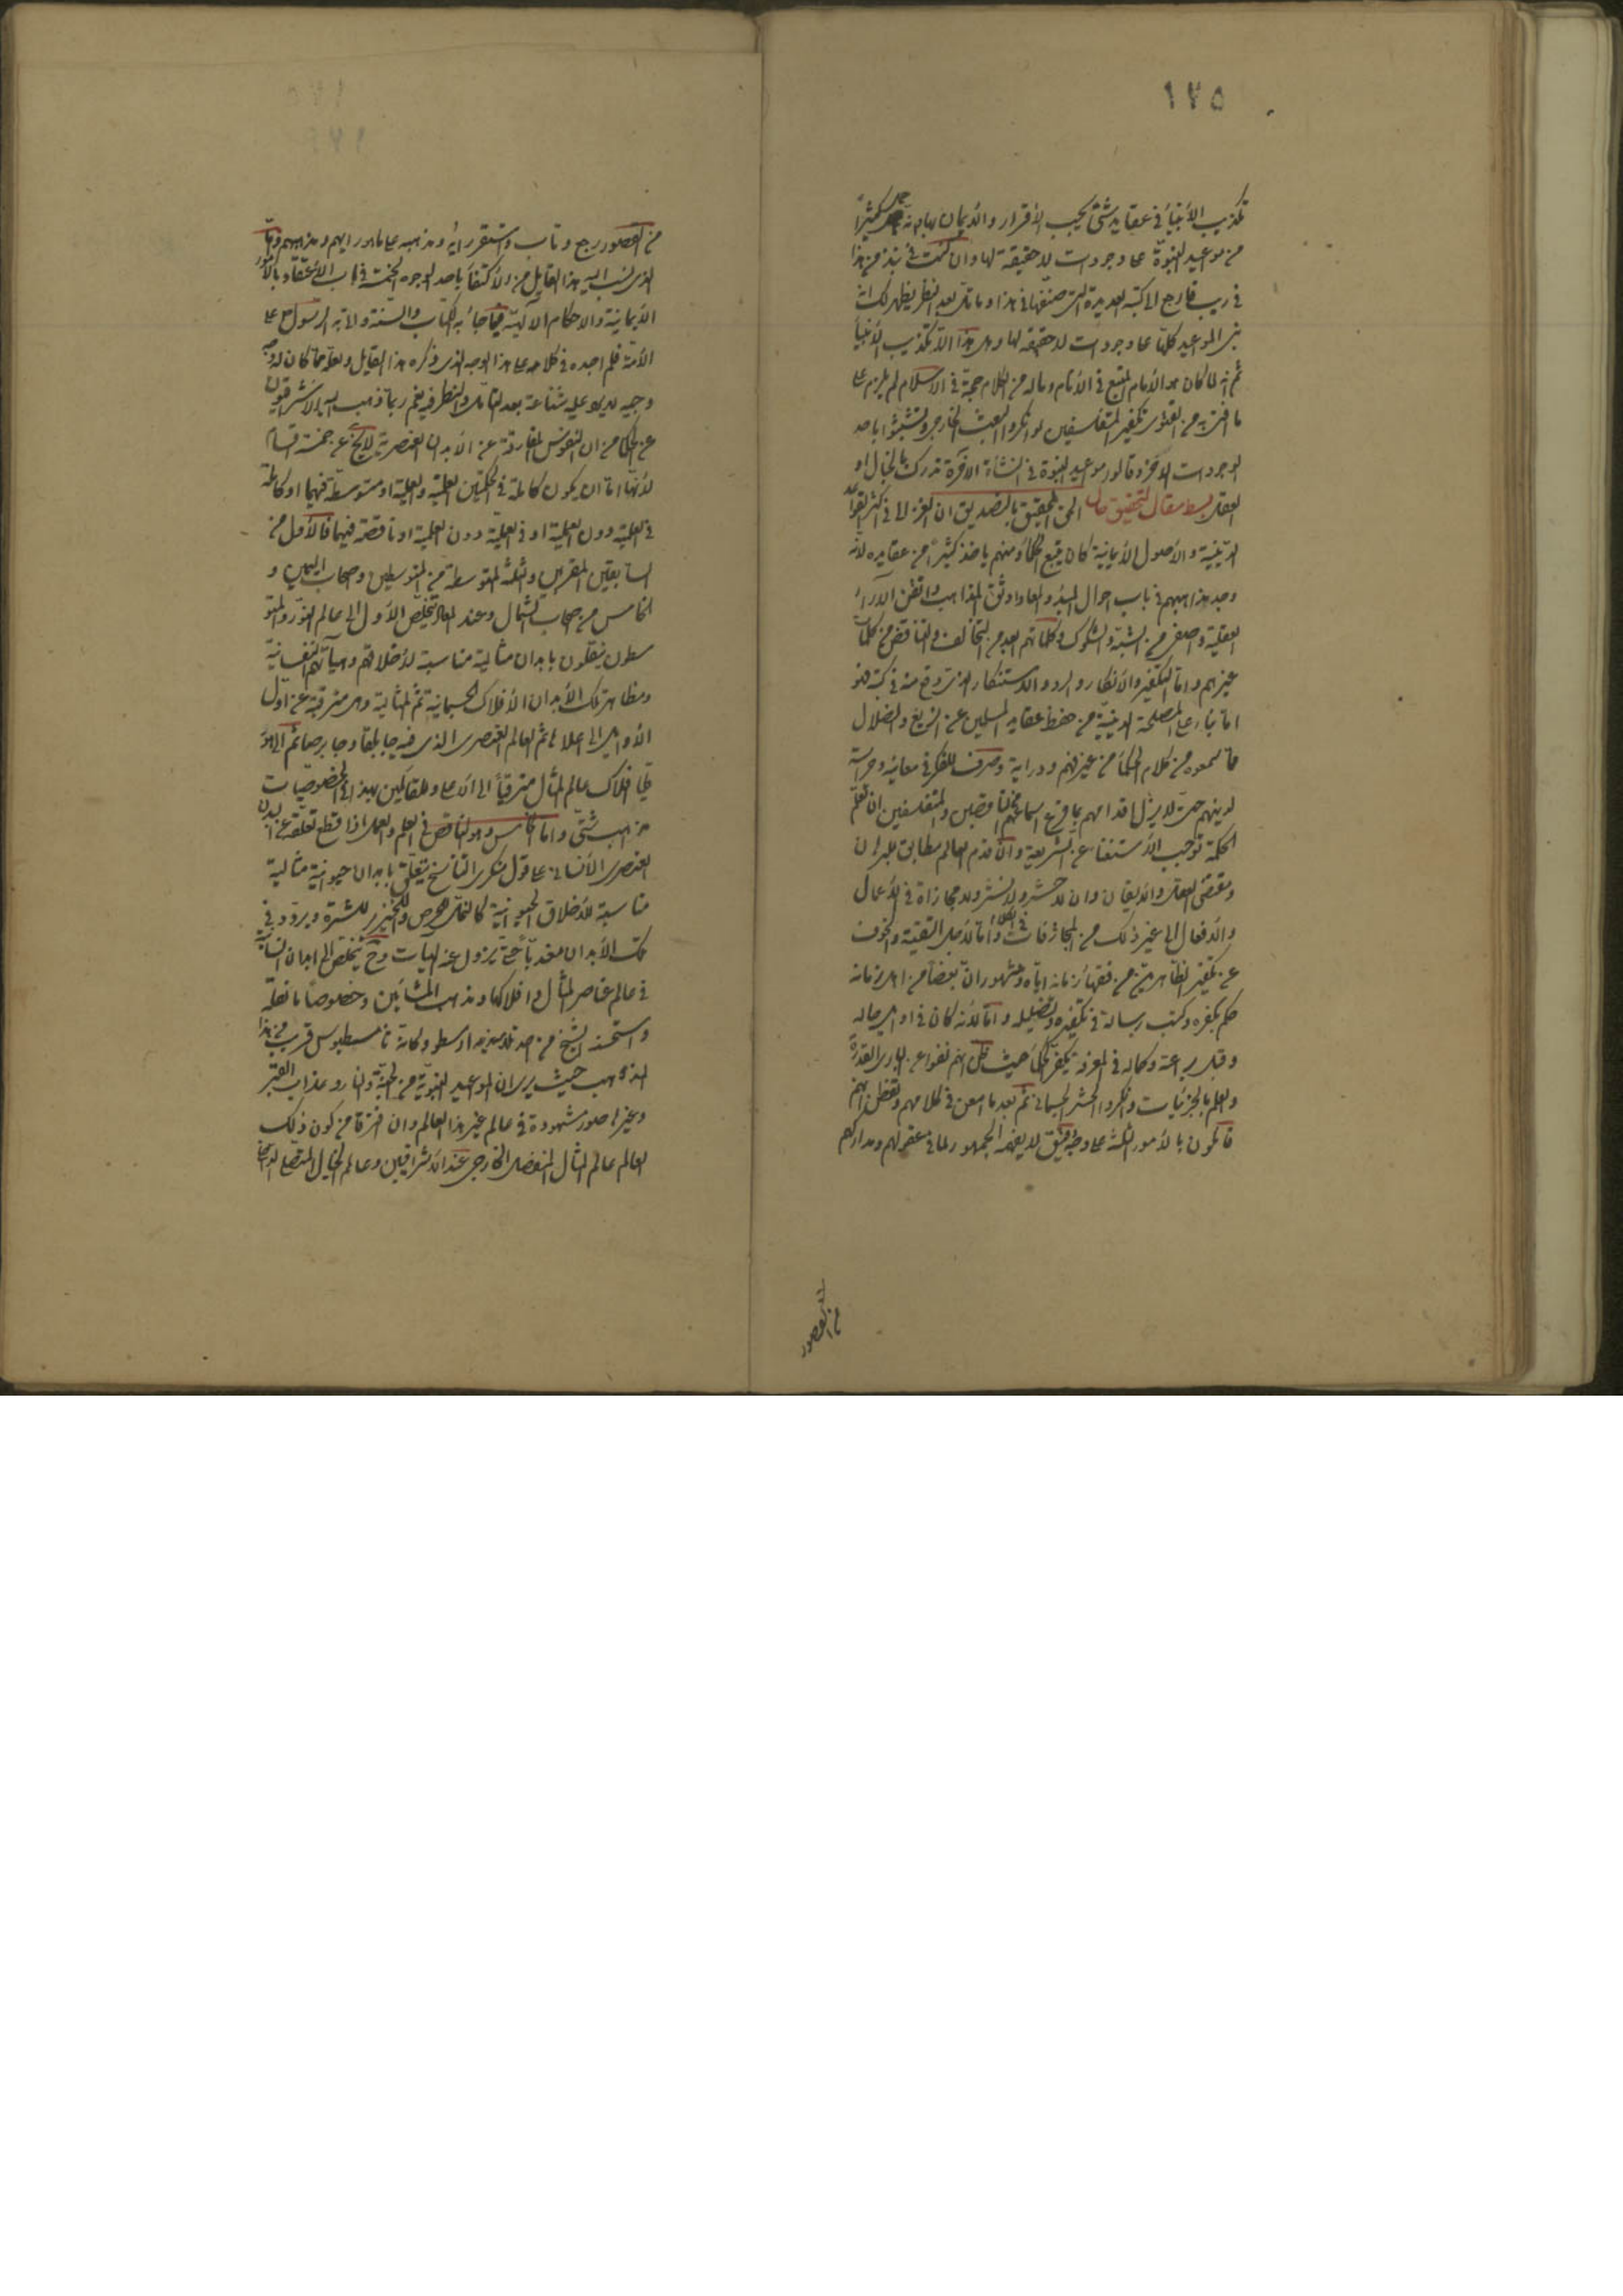 ١٧٥
تكذيب الأنبياء في عقايد شتى يجب الأقرار والأيمان بها لانه حمل كثيراً
من مواعيد النبوة على وجودات لا حقيقة لها وان كنت في نبذ من هذا
في ريب فارجع الى كتبه العديدة التى صنفها في هذا وما تأمل بعد النظر يظهر لك انه
بنى المواعيد كلها على وجودات لا حقيقة لها وهل هذا الا تكذيب الأنبياء
ثم انه لما كان هو الأمام المتبع في الأنام وماله من الكلام حجة في الاسلام لم يلزم على
ما افتى به من الفتوى تكفير المتفلسفين لو انكروا البعث الخارجي وتشبثوا باحد
الوجودات الاخر وقالوا مواعيد النبوة في النشأة الآخرة تدرك بالخيال او
العقل بسط مقال لتحقيق حال الحق الحقيق بالتصديق ان الغزالى في اكثر القواعد
الدينية والأصول الأيمانية كان يتبع الحكماء ومنهم ياخذ كثيراً من عقايده لأنه
وجد مذاهبهم في باب احوال المبدأ والمعاد اوثق المذاهب واتقن الآراء
العقلية واصفى من الشبه والشكوك وكلماتهم ابعد من التخالف والتناقض من كلمات
غيرهم واما التكفير والأنكار والرد والاستنكار الذى وقع منه في كتبه فهو
اما بناء على المصلحة الدينية من حفظ عقايد المسلمين عن الزيغ والضلال
مما سمعوه من كلام الحكماء من غير فهم ودراية وصرف للفكر في معانيه وحراسة
لدينهم حتى لا يزل اقدامهم بما قرع اسماعهم من الناقصين والمتفلسفين ان تعلم
الحكمة توجب الأستغناء عن الشريعة وان قدم العالم مطابق للبرهان
ومقتضى العقل والايقان وان لا حشر ولا نشر ولا مجازاة في الأعمال
والافعال الى غير ذلك من المجازفات في الكلام واما لأجل التقية والخوف
عن تكفير الظاهريين من فقهاء زمانه اياه ومشهور ان بعضاً من اهل زمانه
حكم بكفره وكتب رسالة في تكفيره وتضليله واما لأنه كان في اوايل حاله
وقبل براعته وكماله في المعرفة يكفر الحكماء حيث ظن انهم نفوا عن البارى القدرة
والعلم بالجزئيات وانكروا الحشر الجسمانى ثم بعد ما امعن في كلامهم وتفطن انهم
قائلون بالأمور الثلثة على وجه دقيق لا يفهمه الجمهور لما في عقولهم ومداركهم
من القصور
من القصور رجع وتاب واستقر رأيه ومذهبه على ما هو رايهم ومذهبهم واما
الذى نسب اليه هذا القايل من الأكتفاء باحد الوجوه الخمسة في باب الأعتقاد بالأمور
الأيمانية والاحكام الآلهية مما جاء به الكتاب والسنة ولا به الرسول على
الأمة فلم اجده في كلامه على هذا الوجه الذى ذكره هذا القايل ولعله مما كان له وجه
وجيه لا يرد عليه شناعة بعد التأمل والنظر فيه نعم ربما ذهب اليه الأشراقيون
من الحكما من ان النفوس المفارقة عن الأبدان العنصرية لا يخ عن خمسة اقسام
لأنها اما ان يكون كاملة في الحكمتين العلمية والعملية او متوسطة فيهما او كاملة
في العلمية دون العملية او في العملية دون العلمية او ناقصة فيهما فالأول من
السابقين المقربين والثلثة المتوسطة من المتوسطين واصحاب اليمين و
الخامس من اصحاب الشمال وعندهم يتخلص الأول الى عالم النور والمتو
سطون ينتقلون بابدان مثالية مناسبة لأخلاقهم وهيآتهم النفسانية
ومظاهر تلك الأبدان الأفلاك الجسمانية ثم المثالية وهى مترقية عن اول
الأوايل الى اعلاها ثم العالم العنصرى الذى فيه جابلقا وجابرصا ثم الى هو
قليا افلاك عالم المثال مترقياً الى الأعلى وللقائلين بهذا في الخصوصيات
مذاهب شتى واما الخامس وهو الناقص في العلم والعمل اذا قطع تعلقه عن البدن
العنصرى الأنسانى على قول منكرى التناسخ يتعلق بابدان حيوانية مثالية
مناسبة للأخلاق الحيوانية كالنملة للحرص والخنزير للشره ويردد في
تلك الأبدان معذباً حتى تزول عنه الهيآت وح يتخلص الى ابدان انسانية
في عالم عناصر المثال او افلاكها ومذهب المشائين وخصوصاً ما نقله
واستحسنه الشيخ من احد تلاميذ ارسطو وكانه ثامسطيوس قريب من هذا
المذهب حيث يرى ان المواعيد النبوية من الجنة والنار وعذاب القبر
وغيرها صور مشهودة في عالم غير هذا العالم وان افترقا من كون ذلك
العالم عالم المثال المنفصل الخارجى عند الاشراقيين وعالم الخيال المتصل